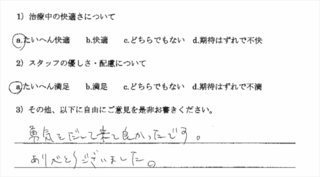 1）治療中の快適さについて
a.たいへん快適 b.快適 c.どちらでもない d.期待はずれで不快
2）スタッフの優しさ・配慮について
a.たいへん満足 b.満足 c.どちらでもない d.期待はずれで不満
3）その他、以下に自由にご意見を是非お書きください。
勇気をだして来て良かったです。
ありがとうございました。